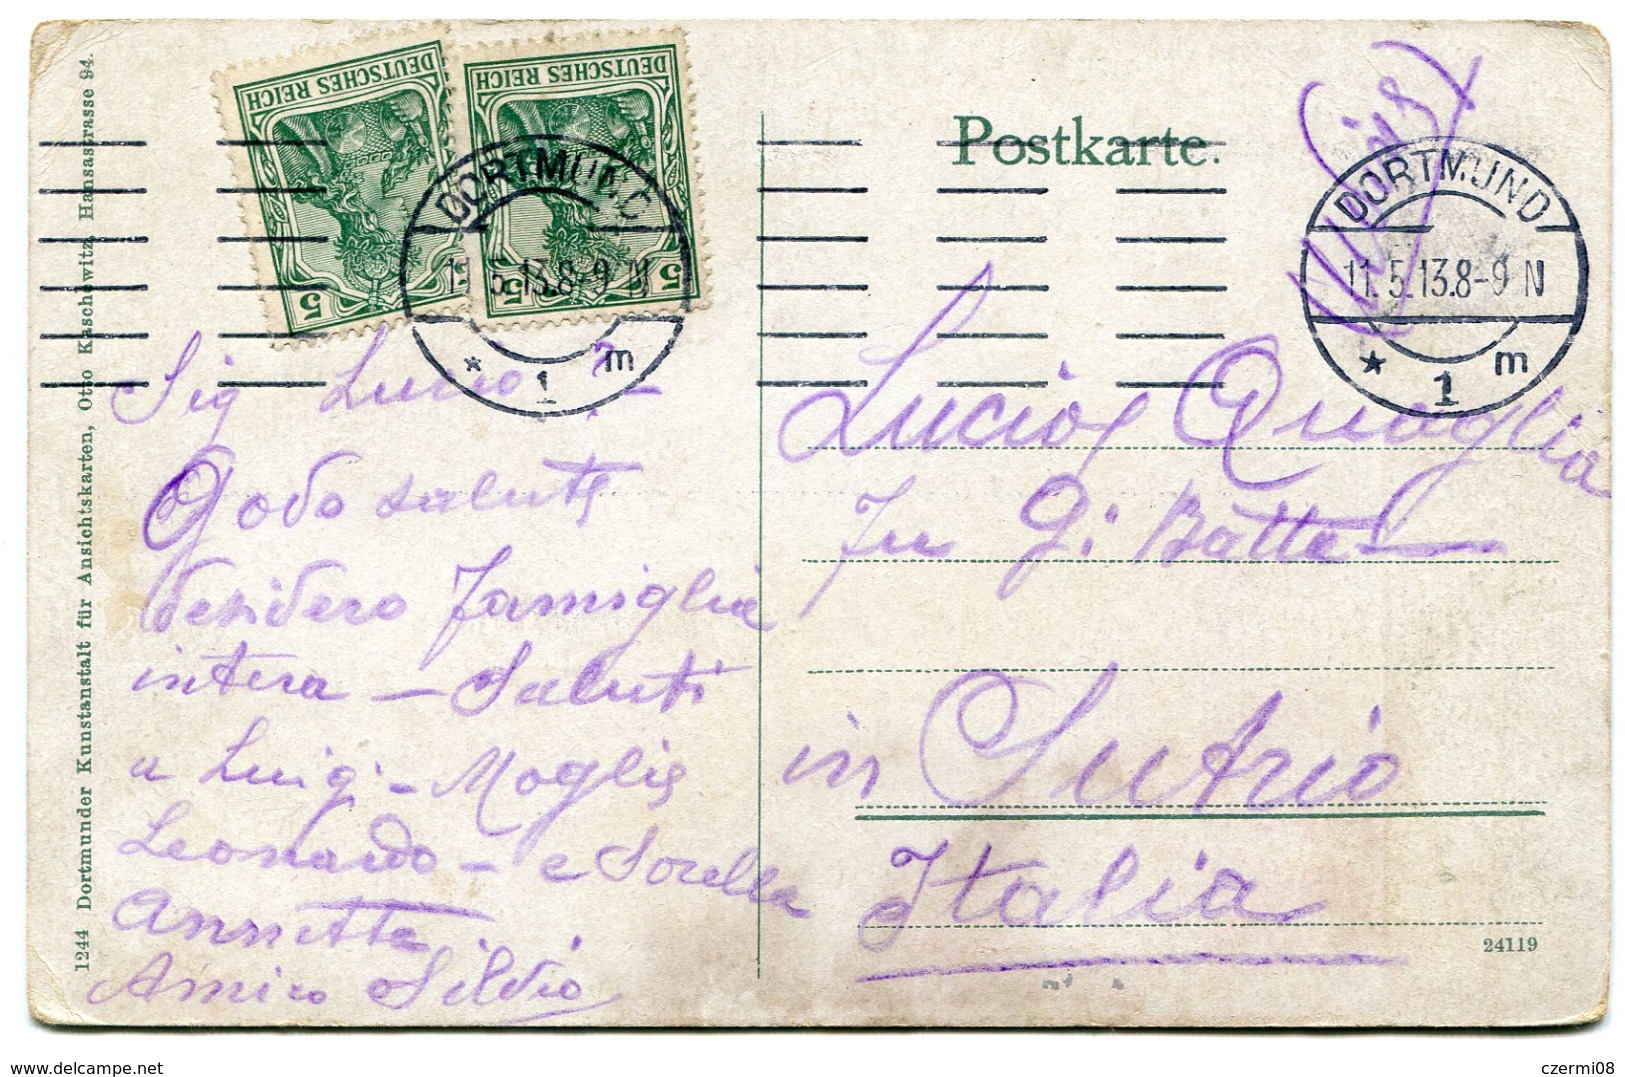 DEUTSCHES REICH
5 5
DEUTSCHES REICH
5 5
Postkarte.
DORTMUND
11.5.13.8-9 N
* 1 m
DORTMUND
11.5.13.8-9 N
* 1 m
Sig Lucio
Godo salute
desidero famiglia
intera — Saluti
a Luigi - Moglie
Leonardo - e Sorella
Annetta
Amico Silvio
Lucio Quaglia
fu G: Batta
in Sutrio
Italia
1244 Dortmunder Kunstanstalt für Ansichtskarten, Otto Kaschewitz, Hansastrasse 94.
24119
www.delcampe.net
czermi08